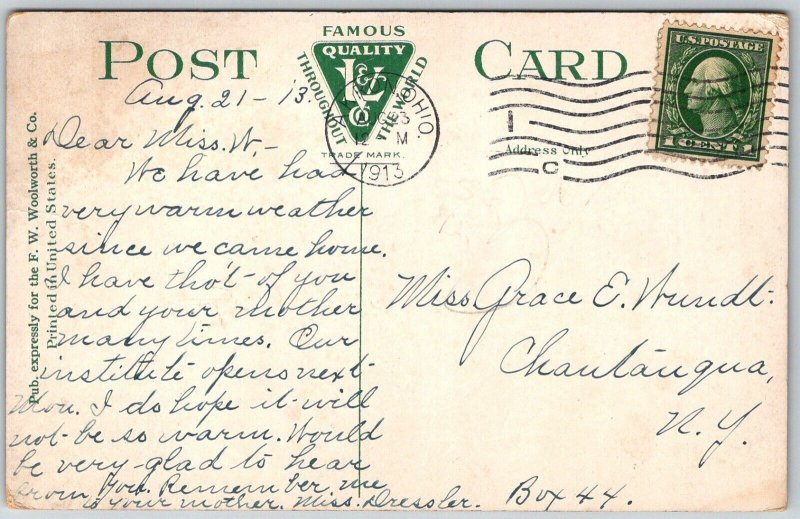 POST CARD
FAMOUS
QUALITY
THROUGHOUT THE WORLD
TRADE MARK.
OHIO.
12 M
1913
U.S. POSTAGE
1 CENT 1
Address Only
Pub. expressly for the F. W. Woolworth & Co.
Printed in United States.
Aug. 21 - 13.
Dear Miss W. -
We have had
very warm weather
since we came home.
I have tho't of you
and your mother
many times. Our
institute opens next
Mon. I do hope it will
not be so warm. Would
be very glad to hear
from you. Remember me
to your mother. Miss Dressler. Box 44.
Miss Grace E. Wundt.
Chautauqua,
N. Y.